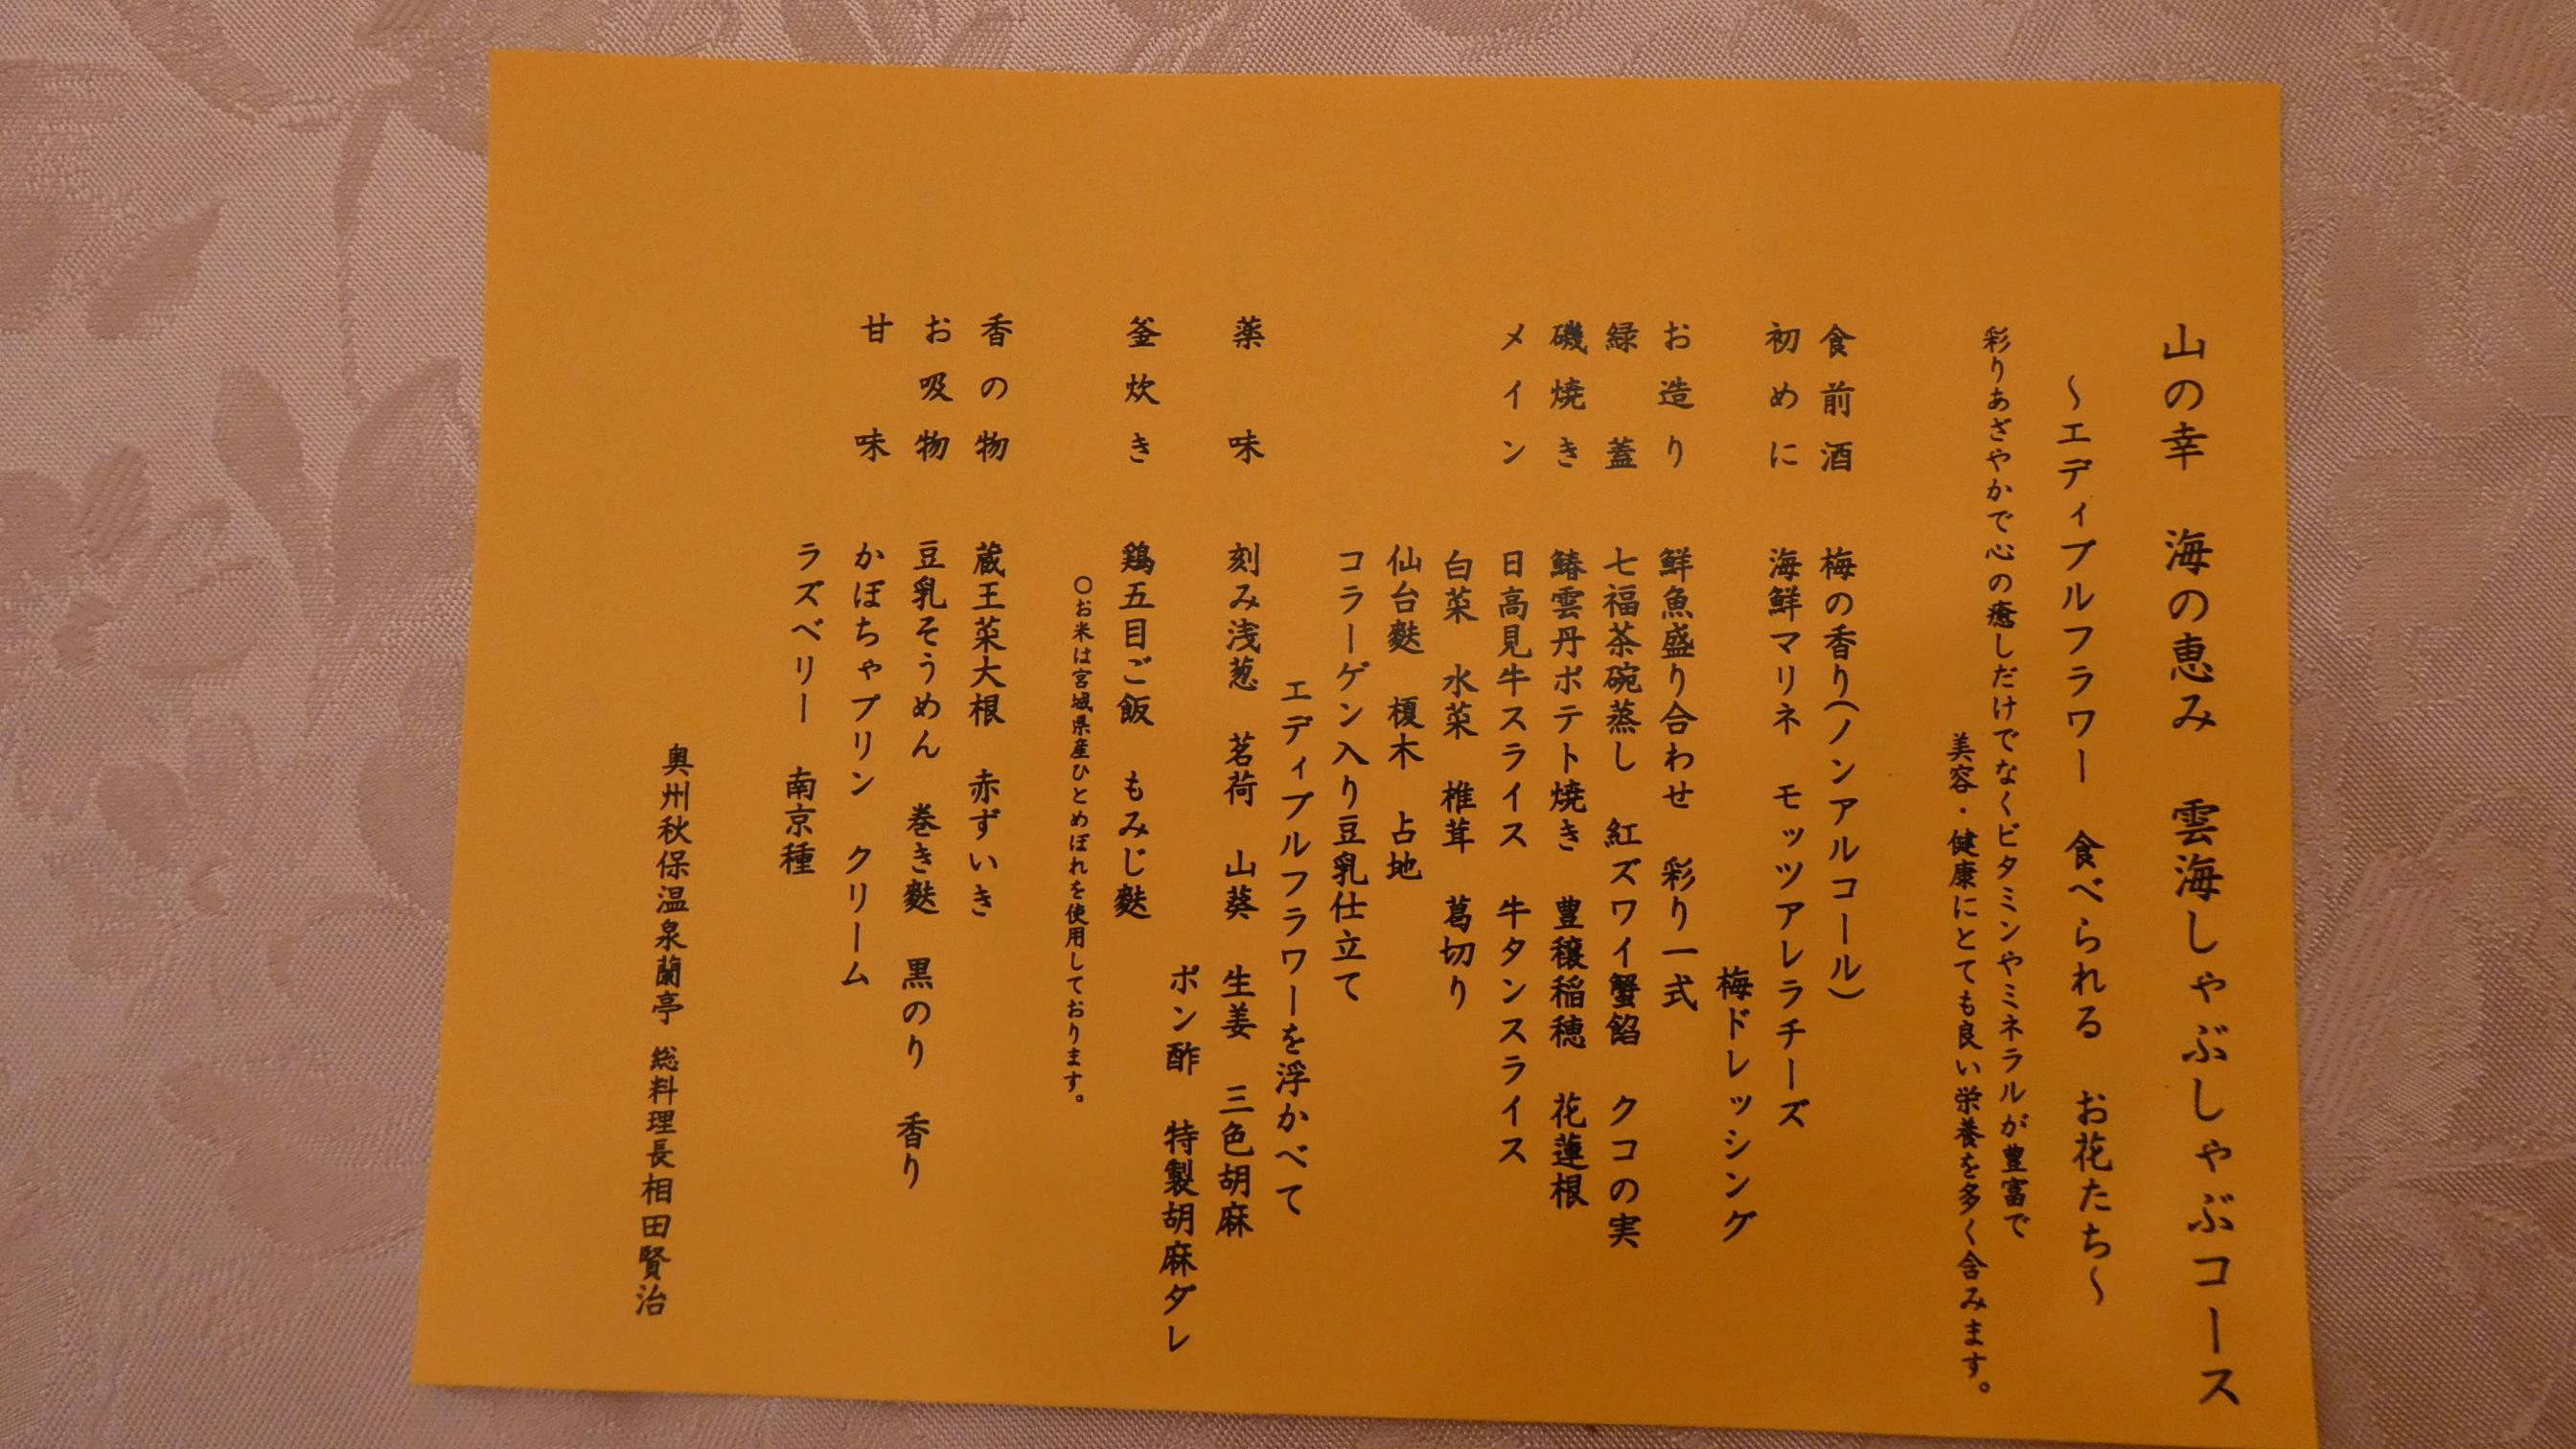 山の幸　海の恵み　雲海しゃぶしゃぶコース
～エディブルフラワー　食べられる　お花たち～
彩りあざやかで心の癒しだけでなくビタミンやミネラルが豊富で
美容・健康にとても良い栄養を多く含みます。
食前酒　梅の香り(ノンアルコール)
初めに　海鮮マリネ　モッツアレラチーズ
梅ドレッシング
お造り　鮮魚盛り合わせ　彩り一式
緑蓋　七福茶碗蒸し　紅ズワイ蟹餡　クコの実
磯焼き　鰆雲丹ポテト焼き　豊穣稲穂　花蓮根
メイン　日高見牛スライス　牛タンスライス
白菜　水菜　椎茸　葛切り
仙台麩　榎木　占地
コラーゲン入り豆乳仕立て
エディブルフラワーを浮かべて
薬味　刻み浅葱　茗荷　山葵　生姜　三色胡麻
ポン酢　特製胡麻ダレ
釜炊き　鶏五目ご飯　もみじ麩
○お米は宮城県産ひとめぼれを使用しております。
香の物　蔵王菜大根　赤ずいき
お吸物　豆乳そうめん　巻き麩　黒のり　香り
甘味　かぼちゃプリン　クリーム
ラズベリー　南京種
奥州秋保温泉蘭亭　総料理長相田賢治